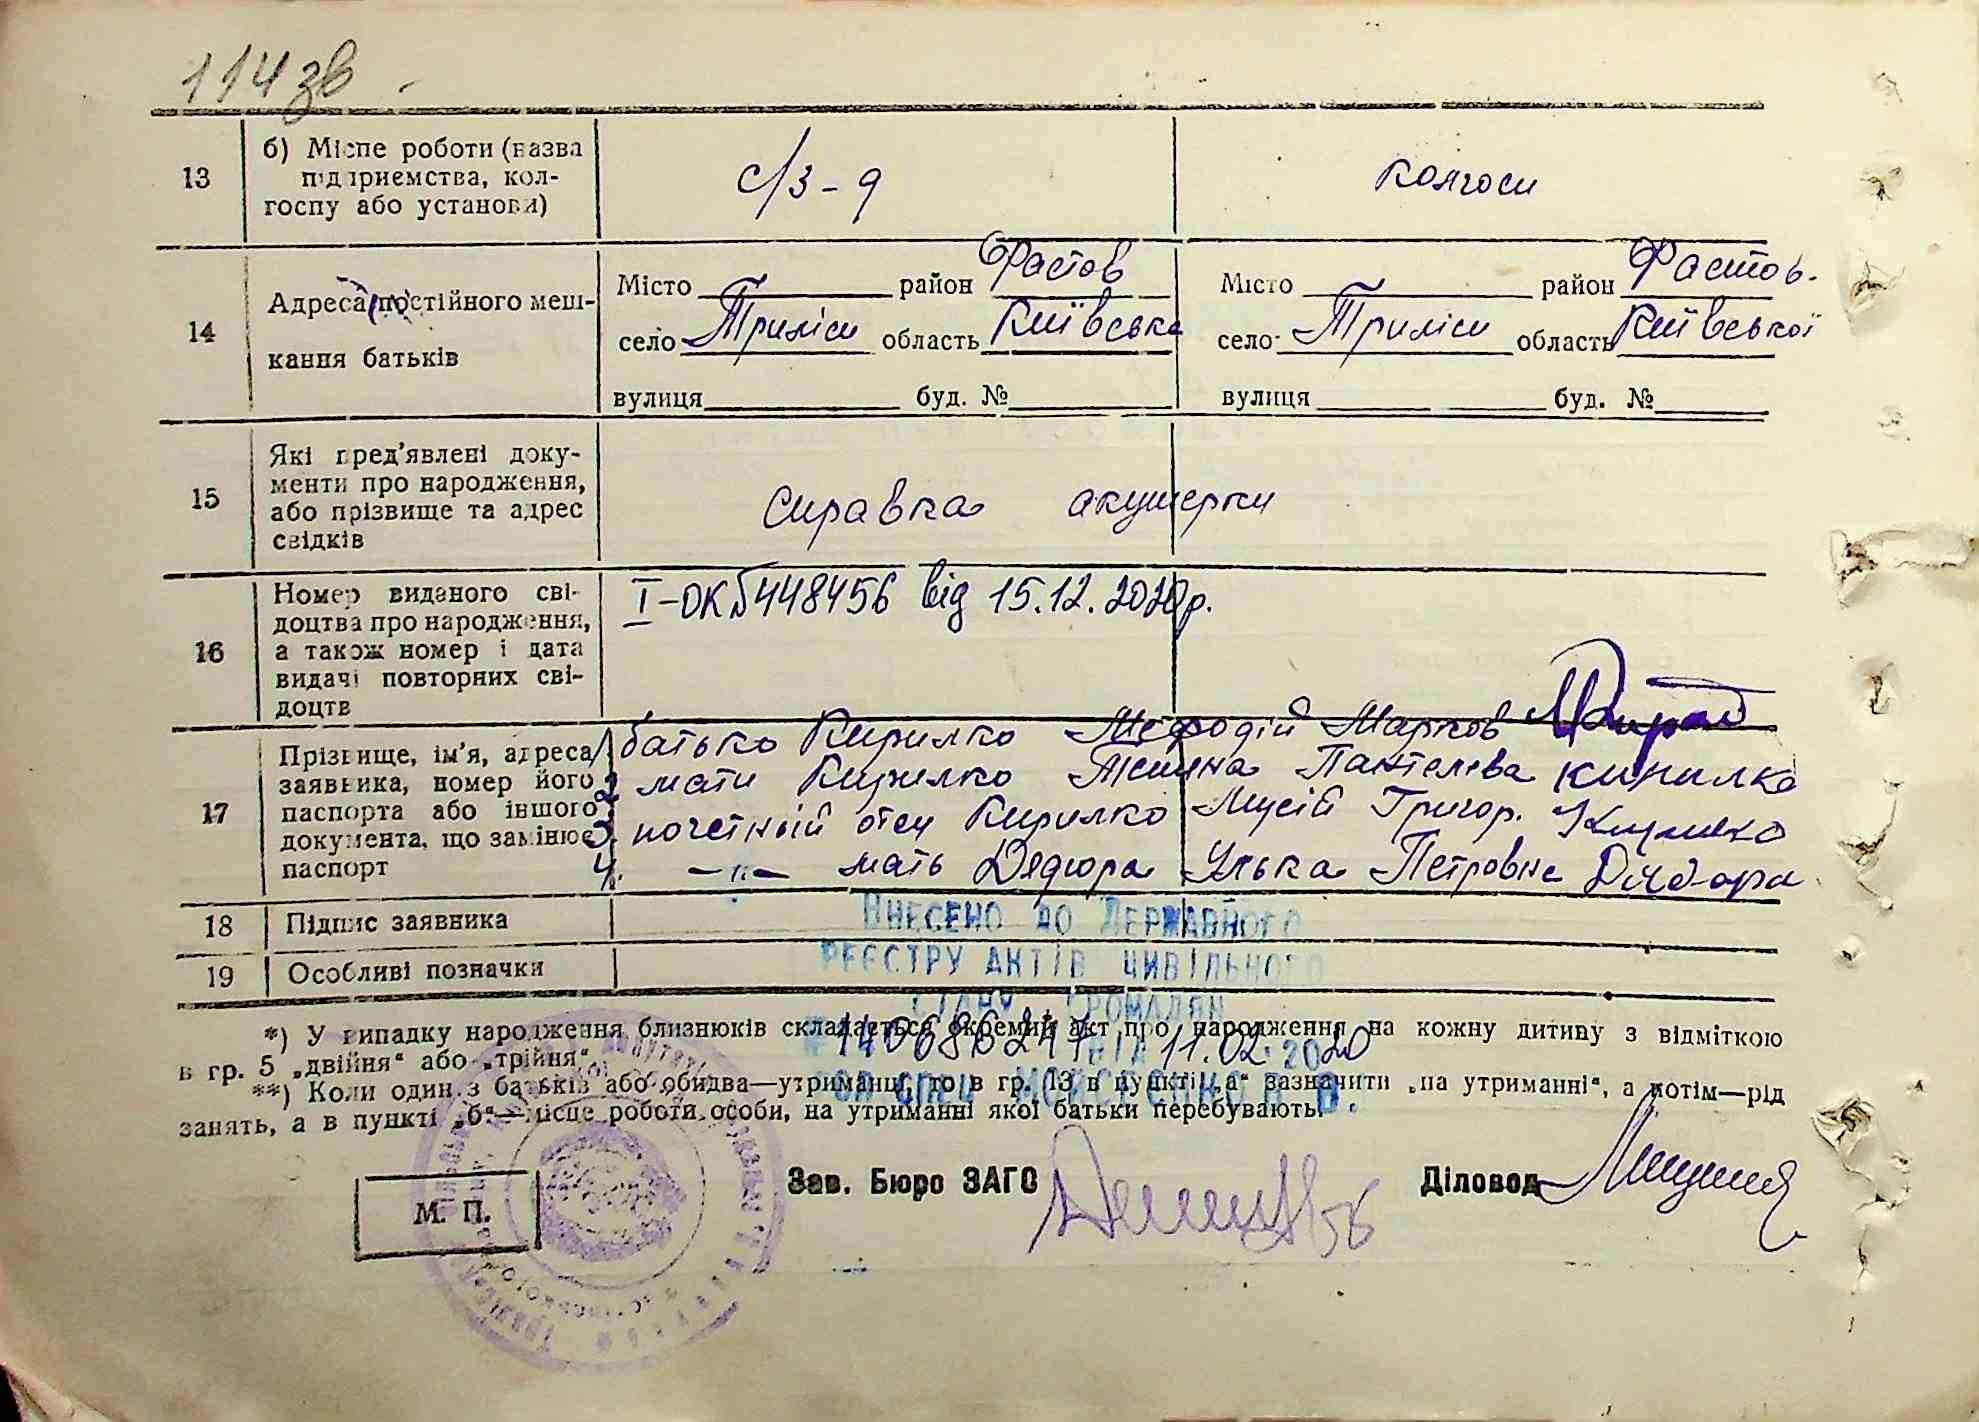 114 зв
13
б) Місце роботи (назва
підприємства, кол-
госпу або установи)
с/з-д
колгосп
14
Адреса постійного меш-
кання батьків
Місто район Фастов
село Триліси область Київська
вулиця буд. №
Місто район Фастов.
село Триліси область Київської
вулиця буд. №
15
Які пред'явлені доку-
менти про народження,
або прізвище та адрес
свідків
справка акушерки
16
Номер виданого сві-
доцтва про народження,
а також номер і дата
видачі повторних сві-
доцтв
І-ОК 448456 від 15.12.2020р.
17
Прізвище, ім'я, адреса
заявника, номер його
паспорта або іншого
документа, що замінює
паспорт
1 батько Кирилко Мефодій Марков
2 мати Кирилко Тетяна Пантелєва Кирилко
3. почетний отец Кирилко Мусій Григор. Кирилко
4. —"— мать Дядюра Улька Петровна Дядюра
18
Підпис заявника
19
Особливі позначки
Внесено до Державного
реєстру актів цивільного
стану громадян
№ 140686247 від 11.02.2020
*) У випадку народження близнюків складається окремий акт про народження на кожну дитину з відміткою
в гр. 5 „двійня“ або „трійня“.
**) Коли один з батьків або обидва—утриманці, то в гр. 13 в пункті „а“ зазначити „на утриманні“, а потім—рід
занять, а в пункті „б“—місце роботи особи, на утриманні якої батьки перебувають.
М. П.
Зав. Бюро ЗАГС
Діловод